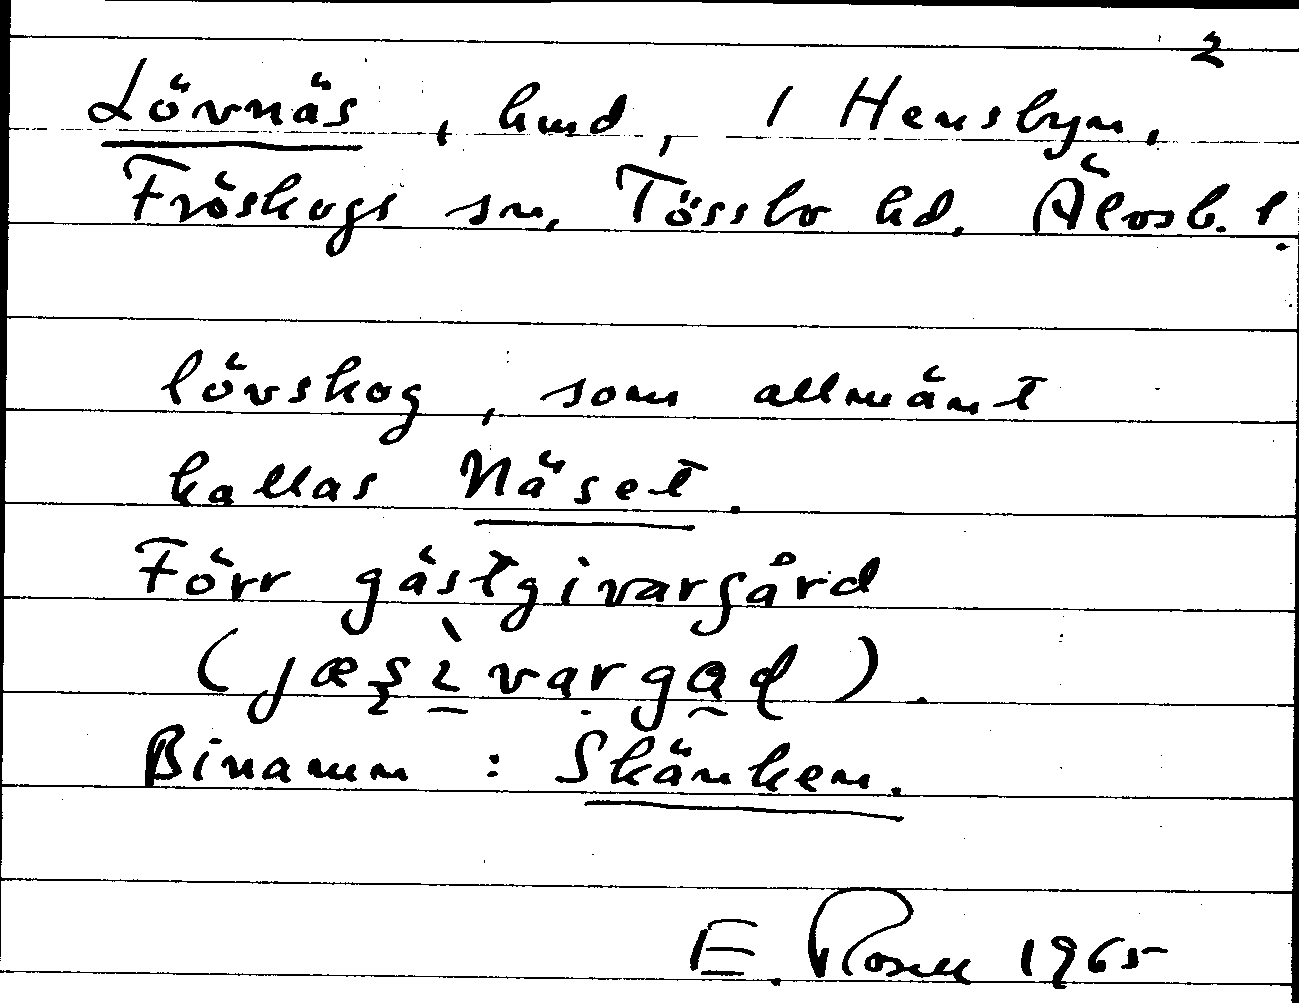 2
Lövnäs, hmd, 1 Hensbyn,
Fröskogs sn, Tössbo hd, Älvsb. l.
lövskog, som allmänt
kallas Näset.
Förr gästgivargård
Binamn: Skänken.
E. Rosell 1965